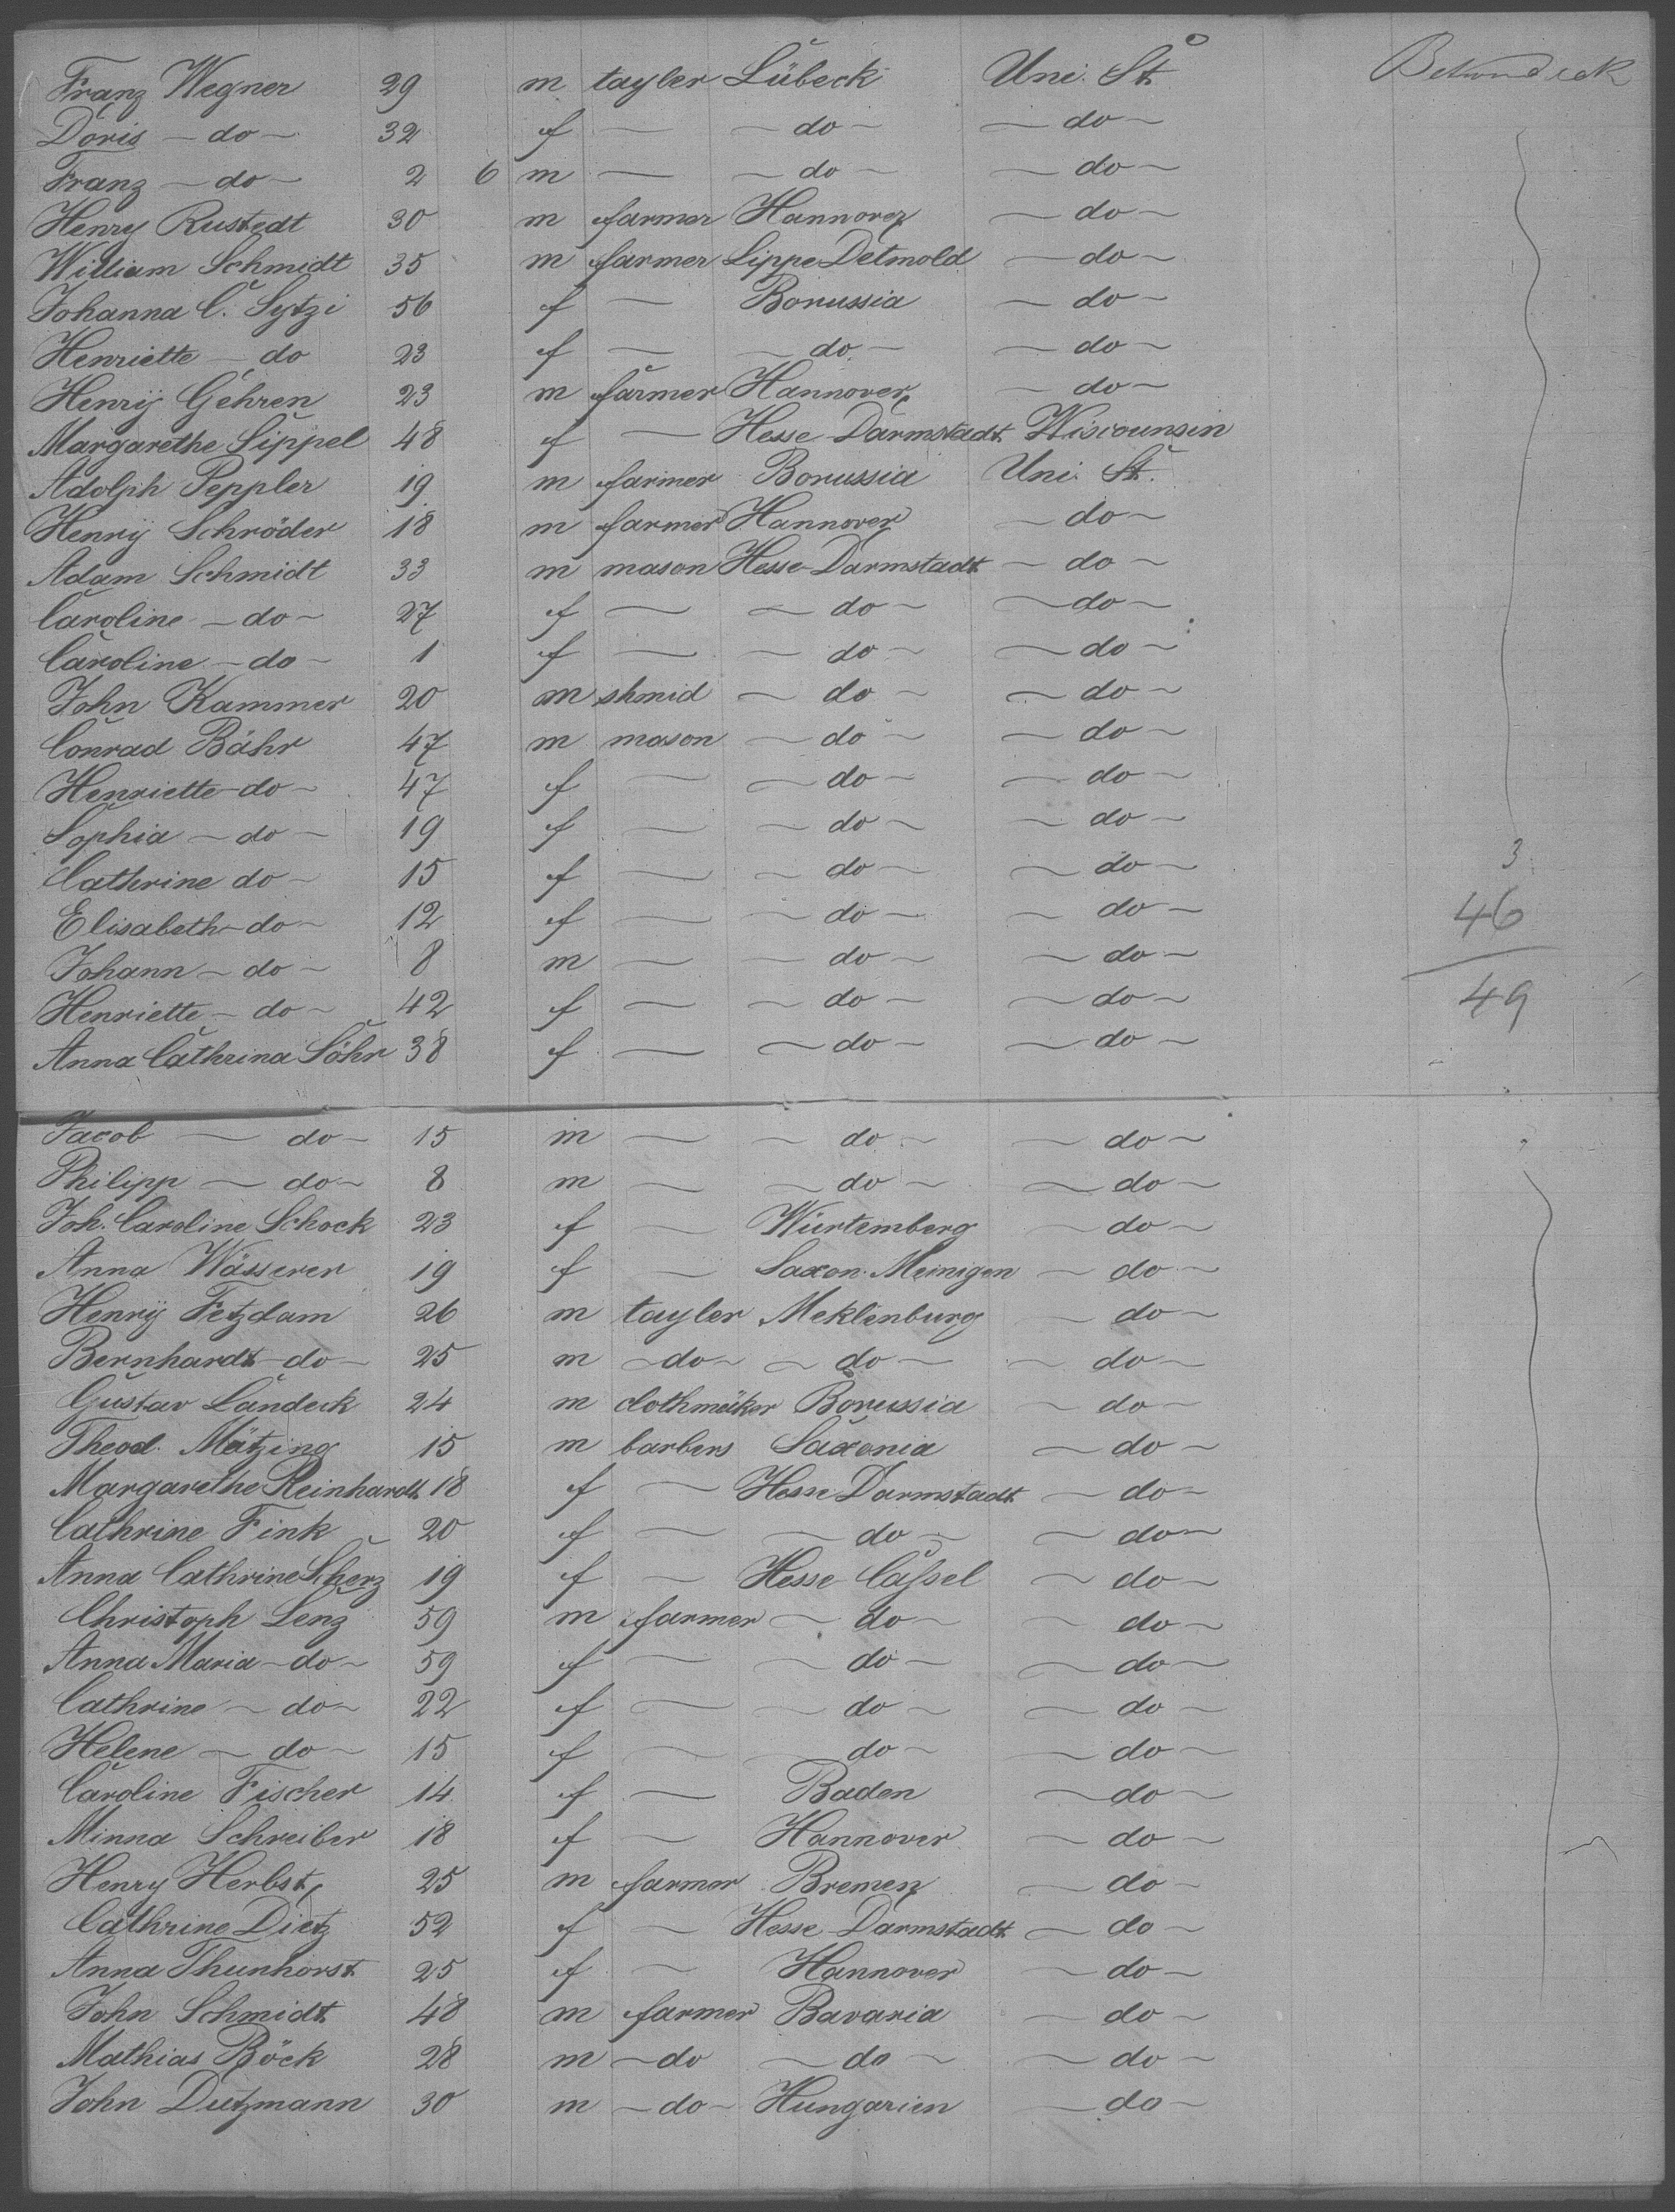 Franz Wegner 29 m tayler Lübeck Uni. St. Betwondeck
Doris - do - 32 f — - do - - do -
Franz - do - 2 6 m — - do - - do -
Henry Rustedt 30 m farmer Hannover - do -
William Schmidt 35 m farmer Lippe Detmold - do -
Johanna C. Sytzi 56 f — Borussia - do -
Henriette - do 23 f — - do - - do -
Henrÿ Gehren 23 m farmer Hannover - do -
Margarethe Lippel 48 f — Hesse-Darmstadt Wiscounsin
Adolph Peppler 19 m farmer Borussia Uni. St.
Henrÿ Schröder 18 m farmer Hannover - do -
Adam Schmidt 33 m mason Hesse-Darmstadt - do -
Caroline - do - 27 f — - do - - do -
Caroline - do - 1 f — - do - - do -
John Kammer 20 m shmid - do - - do -
Conrad Bähr 47 m mason - do - - do -
Henriette - do - 47 f — - do - - do -
Sophia - do - 19 f — - do - - do -
Cathrine do - 15 f — - do - - do - 3
Elisabeth - do - 12 f — - do - - do - 46
Johann - do - 8 m — - do - - do -
Henriette - do - 42 f — - do - - do - 49
Anna Cathrina Löhr 38 f — - do - - do -
Jacob - do - 15 m — - do - - do -
Philipp - do - 8 m — - do - - do -
Joh. Caroline Schock 23 f — Würtemberg - do -
Anna Wässerer 19 f — Saxon. Meinigen - do -
Henrÿ Fetzdam 26 m tayler Meklenburg - do -
Bernhardt - do - 25 m - do - - do - - do -
Gustav Landeck 24 m clothmaker Borussia - do -
Theod. Mätzing 15 m barbers Saxonia - do -
Margarethe Reinhardt 18 f — Hesse Darmstadt - do -
Cathrine Fink 20 f — - do - - do -
Anna Cathrine Scherz 19 f — Hesse Cassel - do -
Christoph Lenz 59 m farmer - do - - do -
Anna Maria - do - 59 f — - do - - do -
Cathrine - do - 22 f — - do - - do -
Helene - do - 15 f — - do - - do -
Caroline Fischer 14 f — Baden - do -
Minna Schreiber 18 f — Hannover - do -
Henry Herbst 25 m farmer Bremen - do -
Cathrine Dietz 52 f — Hesse-Darmstadt - do -
Anna Thunhorst 25 f — Hannover - do -
John Schmidt 48 m farmer Bavaria - do -
Mathias Böck 28 m - do - do - - do -
John Dutzmann 30 m - do - Hungarien - do -